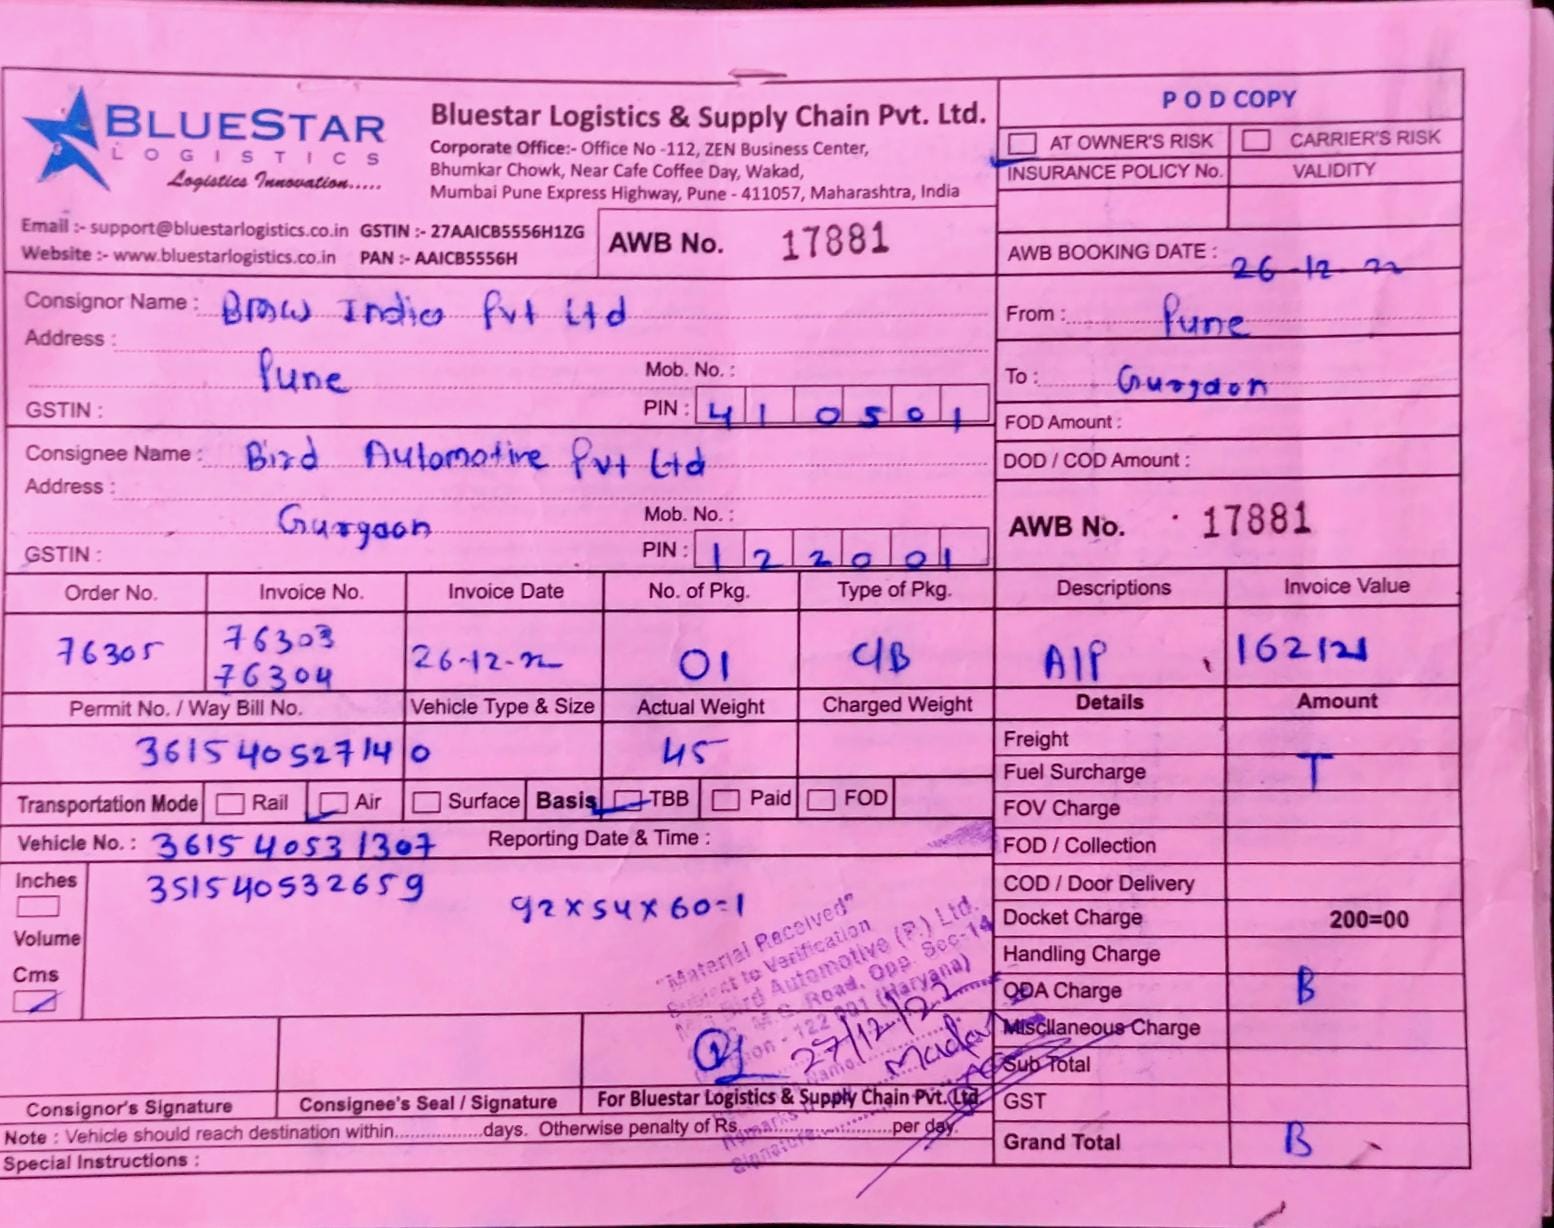 BLUESTAR
LOGISTICS
Logistics Innovation.....
Bluestar Logistics & Supply Chain Pvt. Ltd.
Corporate Office:- Office No -112, ZEN Business Center,
Bhumkar Chowk, Near Cafe Coffee Day, Wakad,
Mumbai Pune Express Highway, Pune - 411057, Maharashtra, India
Email :- support@bluestarlogistics.co.in GSTIN :- 27AAICB5556H1ZG
Website :- www.bluestarlogistics.co.in PAN :- AAICB5556H
AWB No. 17881
POD COPY
AT OWNER'S RISK CARRIER'S RISK
INSURANCE POLICY No. VALIDITY
AWB BOOKING DATE : 26-12-22
From : Pune
To : Gurgaon
FOD Amount :
DOD / COD Amount :
AWB No. 17881
Consignor Name : BMW India Pvt Ltd
Address :
Pune Mob. No. :
GSTIN : PIN : 410501
Consignee Name : Bird Automotive Pvt Ltd
Address :
Gurgaon Mob. No. :
GSTIN : PIN : 122001
Order No. Invoice No. Invoice Date No. of Pkg. Type of Pkg. Descriptions Invoice Value
76305 76303 26-12-22 01 C/B A/P 162121
76304
Permit No. / Way Bill No. Vehicle Type & Size Actual Weight Charged Weight Details Amount
361540527140 45
Transportation Mode Rail Air Surface Basis TBB Paid FOD
Vehicle No. : 361540531307 Reporting Date & Time :
351540532659
92x54x60=1
Inches
Volume
Cms
Freight
Fuel Surcharge T
FOV Charge
FOD / Collection
COD / Door Delivery
Docket Charge 200=00
Handling Charge
ODA Charge B
Miscllaneous Charge
Sub Total
GST
Grand Total B
"Material Received"
Subject to Verification
Bird Automotive (P.) Ltd.
M.G. Road, Opp. Sec-14
122 001 (Haryana)
27/12/22
Consignor's Signature Consignee's Seal / Signature For Bluestar Logistics & Supply Chain Pvt. Ltd.
Note : Vehicle should reach destination within.................days. Otherwise penalty of Rs...........................per day.
Special Instructions :